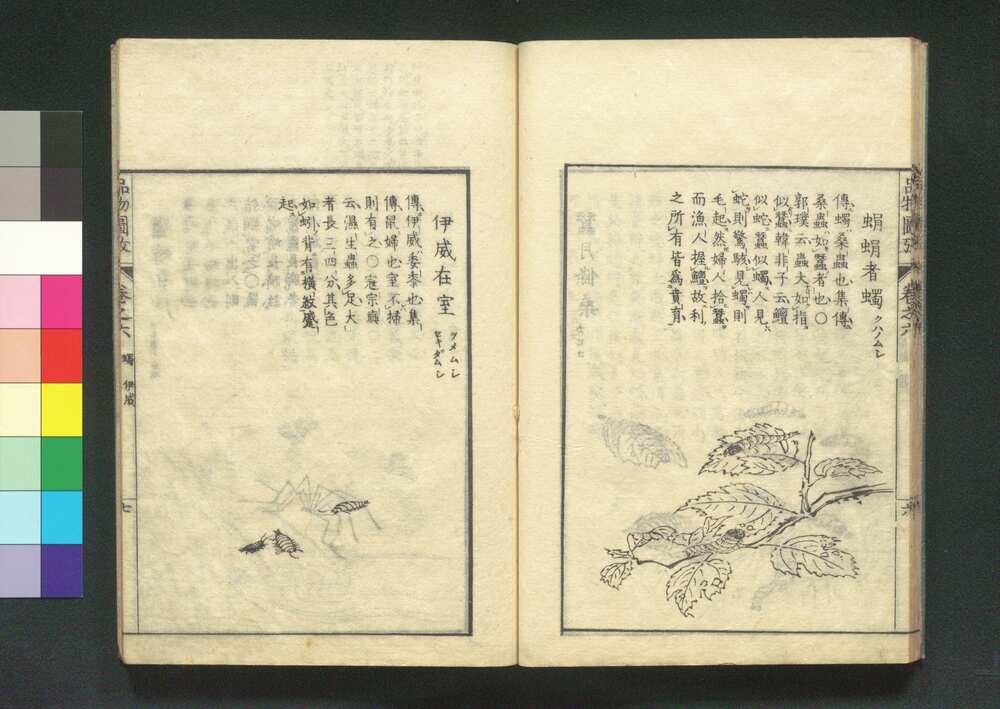 蜎蜎者蠋 クハノムシ
傳蠋桑蟲也集傳
桑蟲如蠶者也〇
郭璞云蟲大如指
似蠶韓非子云鱣
似蛇蠶似蠋人見
蛇則驚駭見蠋則
毛起然婦人拾蠶
而漁人握鱣故利
之所有皆為賁育
品物圖攷 卷之六
伊威在室
傳伊威委黍也集
傳鼠婦也室不掃
則有之〇宼宗奭
云濕生蟲多足大
者長三四分其色
如蚓背有橫紋蹙
起
品物圖攷 卷之六 蠋 伊威 七